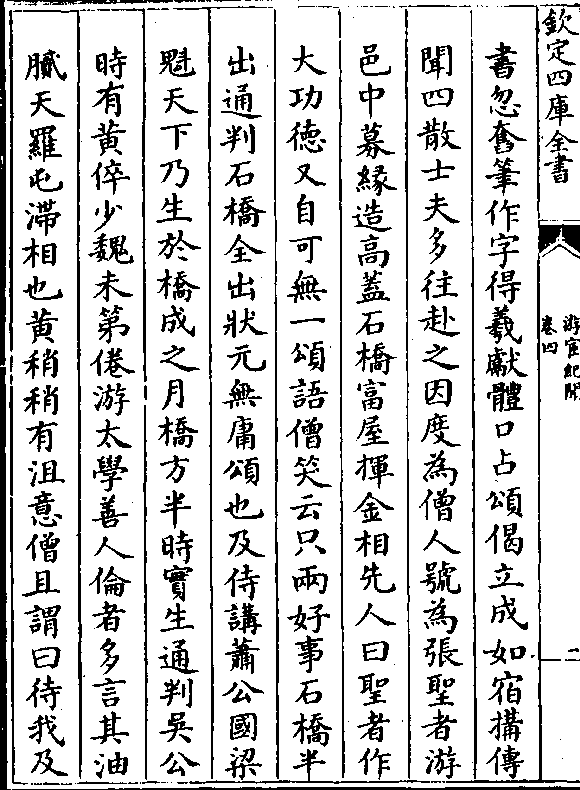 欽定四庫全書
游宦紀聞
卷四
二
書忽奮筆作字得羲獻體口占頌偈立成如宿搆傳
聞四散士夫多往赴之因度為僧人號為張聖者游
邑中募緣造高蓋石橋富屋揮金相先人曰聖者作
大功德又自可無一頌語僧笑云只兩好事石橋半
出通判石橋全出狀元無庸頌也及侍講蕭公國梁
魁天下乃生於橋成之月橋方半時實生通判吳公
時有黃倅少魏未第倦游太學善人倫者多言其油
膩天羅屯滯相也黃稍稍有沮意僧且謂曰待我及